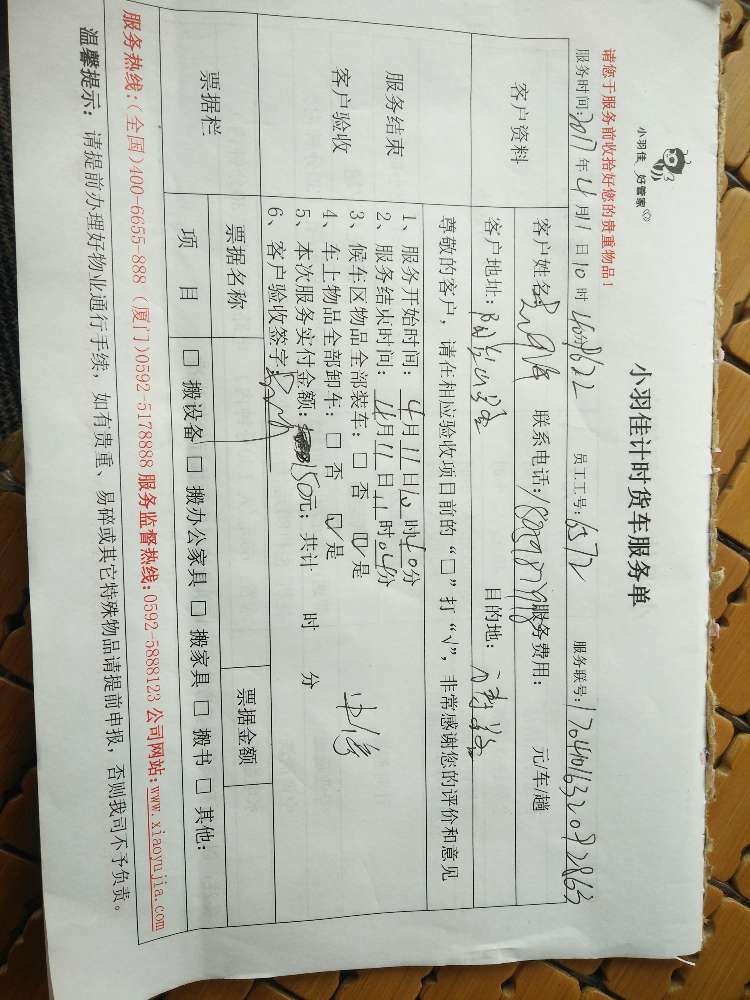 小羽佳 好管家
小羽佳计时货车服务单
请您于服务前收拾好您的贵重物品！
服务时间:2017年4月11日10时 员工工号:6572 服务联号:
客户资料
客户姓名: 联系电话: 服务费用: 元/车/趟
客户地址: 目的地:
尊敬的客户，请在相应验收项目前的“□”打“√”，非常感谢您的评价和意见
服务结束
客户验收
1、服务开始时间: 4月11日10时40分
2、服务结束时间: 4月11日11时04分
3、候车区物品全部装车: □ 否 ☑ 是
4、车上物品全部卸车: □ 否 ☑ 是
5、本次服务实付金额: 150元; 共计 时 分
6、客户验收签字:
票据栏
票据名称 票据金额
项 目 □ 搬设备 □ 搬办公家具 □ 搬家具 □ 搬书 □ 其他:
服务热线:(全国)400-6655-888 (厦门)0592-5178888 服务监督热线:0592-5888123 公司网站:www.xiaoyujia.com
温馨提示: 请提前办理好物业通行手续，如有贵重、易碎或其它特殊物品请提前申报，否则我司不予负责。